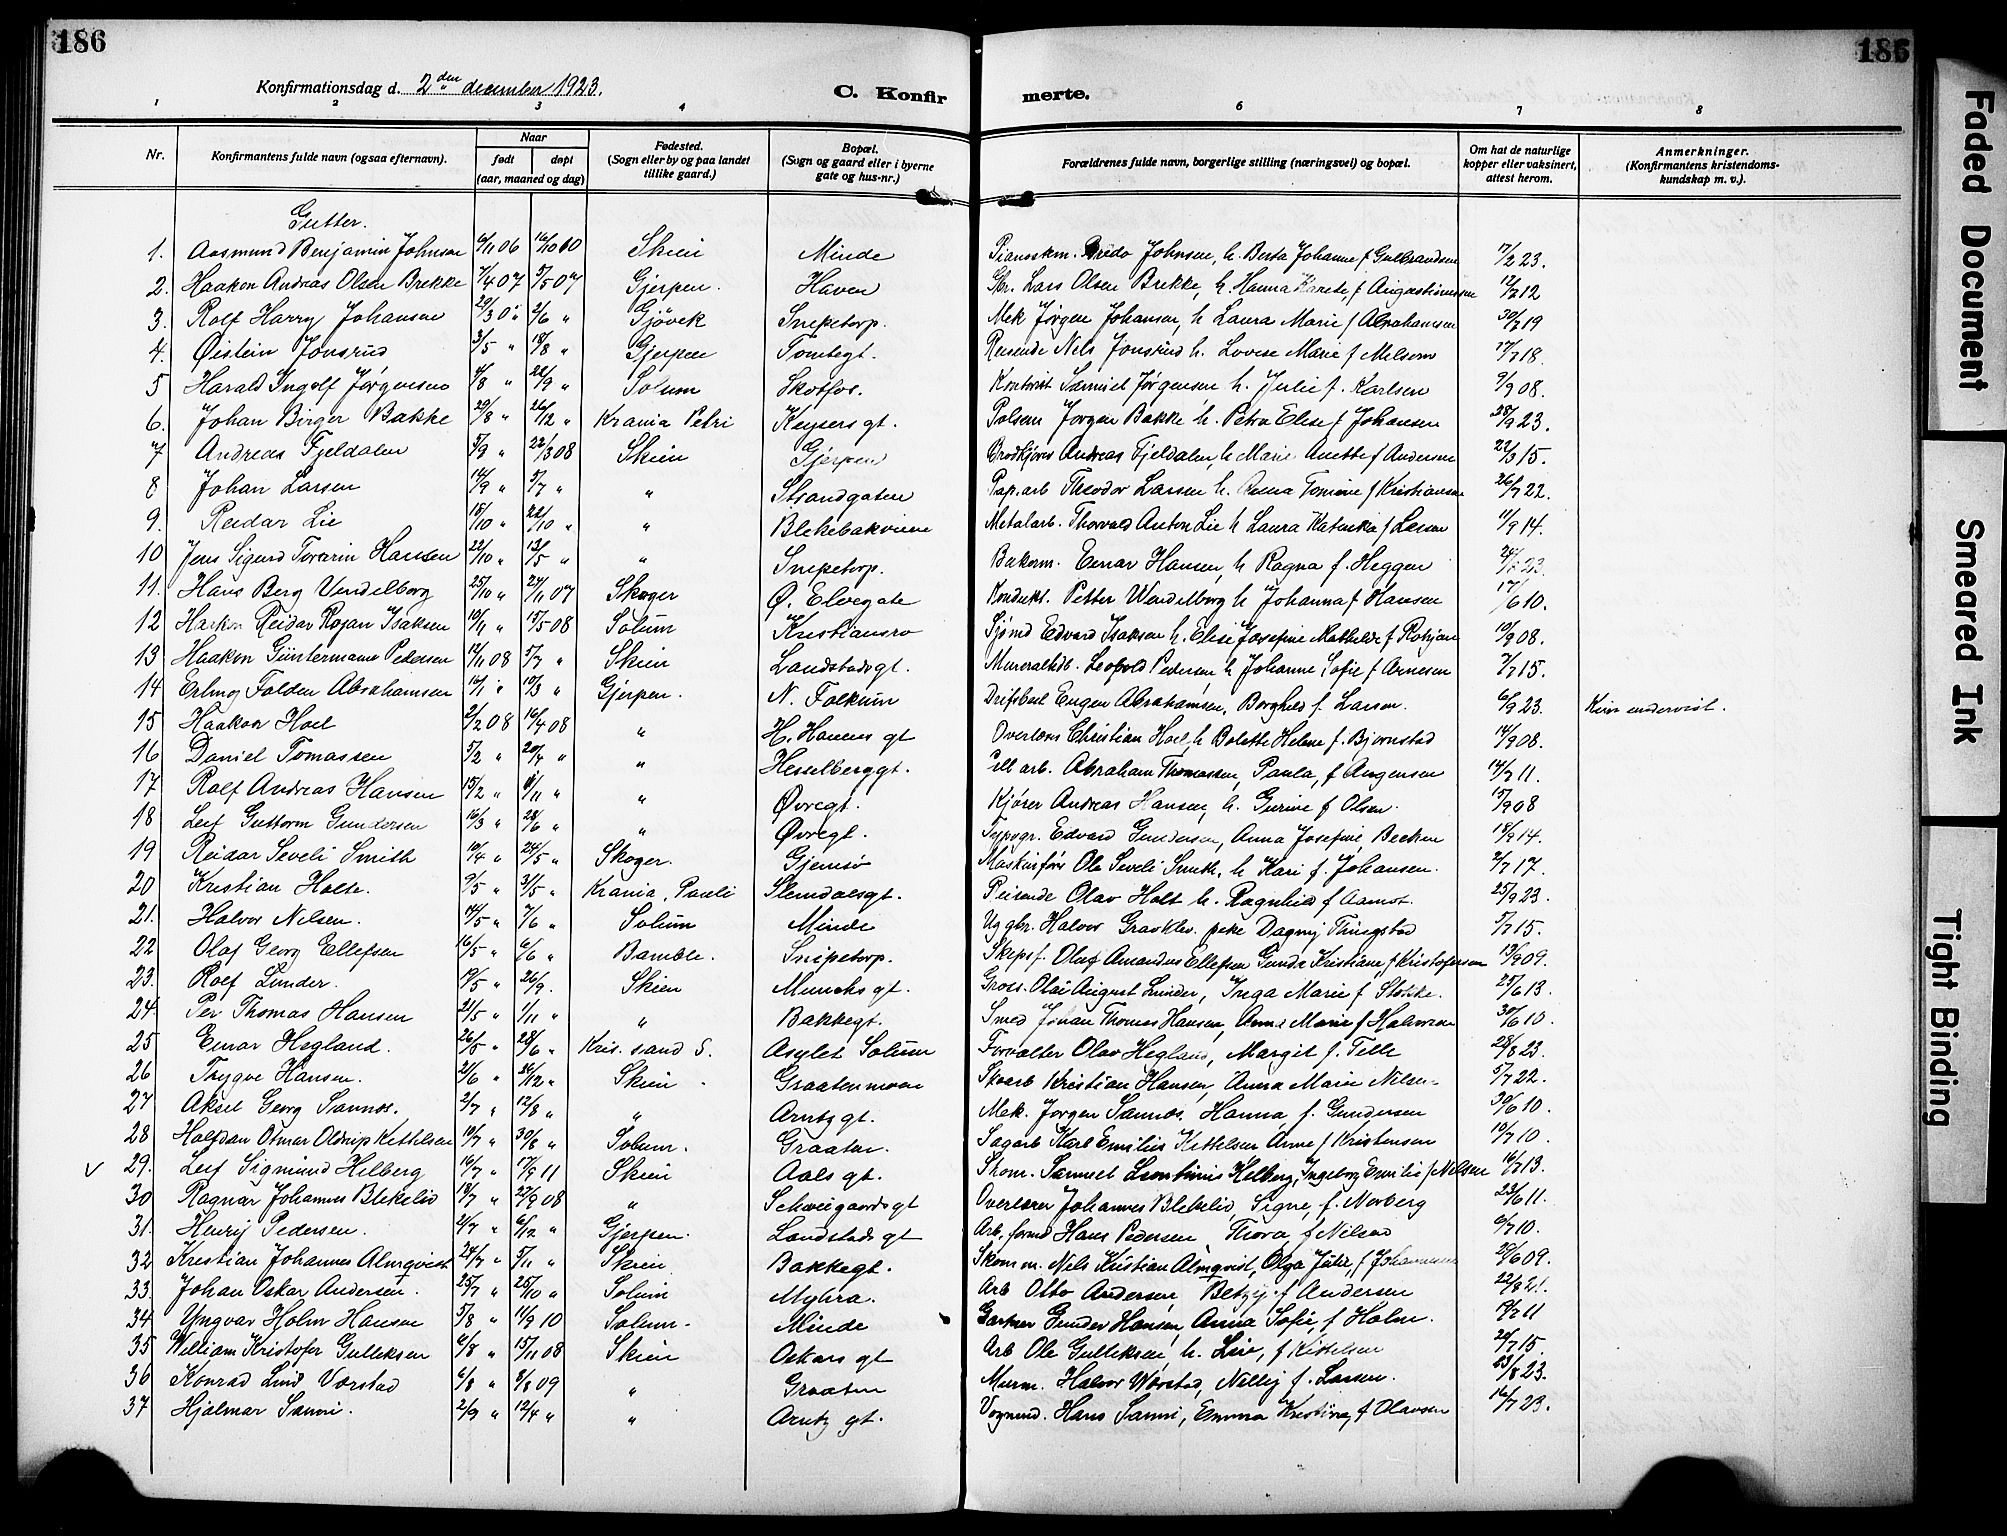 186
186
Konfirmationsdag d. 2den december 1923.
C. Konfir merte.
1 2 3 4 6 7 8
Nr. Konfirmantens fulde navn (ogsaa efternavn). Naar født døpt (aar, maaned og dag) Fødested. (Sogn eller by og paa landet tillike gaard.) Bopæl. (Sogn og gaard eller i byerne gate og hus-nr.) Forældrenes fulde navn, borgerlige stilling (næringsvei) og bopæl. Om hat de naturlige kopper eller vaksinert, attest herom. Anmerkninger. (Konfirmantens kristendomskundskap m. v.).
Gutter.
1. Aasmund Benjamin Johnsen 6/11 06 16/10 10 Skien Minde Johnsen, h. Berta Johanne f Gulbrandsen 17/2 23.
2. Haakon Andreas Olsen Brekke 7/4 07 5/5 07 Gjerpen. Haven Gbr. Lars Olsen Brekke, h. Hanna Karete, f Augustinussen 12/7 12
3. Rolf Harry Johansen 29/3 2/6 " Gjövik Snipetorp. Mek Jørgen Johansen, h Laura Marie f Abrahamsen 30/7 19
4. Øistein Jonsrud 3/5 " 18/8 " Gjerpen Tomtegt. Reisende Nels Jonsrud h. Lovise Marie f Melsom 17/7 18.
5 Harald Ingolf Jørgensen 4/8 " 22/9 " Solum Skotfos. Kontorist Samuel Jørgensen h. Julie f. Karlsen 9/9 08.
6. Johan Birger Bakke 29/8 " 26/12 " Krania Petri Keysers gt. Jørgen Bakke h. Petra Elise f Johansen 28/9 23.
7 Andreas Fjeldalen 5/9 " 22/3 08 Skien Gjerpen Brødkjører Andreas Fjeldalen, h Marie Anette f Andersen 22/3 15.
8 Johan Larsen 14/9 " 5/7 " " Strandgaten Pap.arb Theodor Larsen h. Tomine f Kristiansen 26/7 22.
9. Reidar Lie 15/10 " 22/10 " " Blekebakveien Metalarb. Thorvald Anton Lie h Laura Katinka f Larsen 11/9 14.
10 Jens Sigurd Torerin Hansen 22/10 " 13/5 " " Snipetorp. Bakerm. Einar Hansen, h Ragna f. Heggen
11. Hans Berg Vendelborg 25/10 " 24/11 07 Skoger Ø. Elvegate Kondukt. Petter Wendelborg h Johanna f Hansen 17/6 10.
12 Haakon Reidar Rojan Isaksen 10/11 " 17/5 08 Solum Kristiansro Sjömd Edvard Isaksen h. Elise Josefine Mathilde f Rohjan 10/9 08.
13 Haakon Güntermann Pedersen 14/11 08 5/7 " Skien Landstadsgt. Mineralhdl. Leopold Pedersen, h Johanne Sofie f Arnesen 7/7 15.
14 Erling Falden Abrahamsen 16/1 " 10/3 " Gjerpen. N. Falkum Driftsbest Eugen Abrahamsen, Borghild f. Larsen. 6/9 23. Kun undervist.
15 Haakon Hoel 2/2 08 16/4 08 " H. Hanens gt Overlærer Christian Hoel, h Bolette Helene f. Bjornstad 14/9 08.
16 Daniel Tomassen 5/2 " 20/4 " " Hesselberggt. Cell arb. Abraham Thomassen, Paula, f Jörgensen 14/7 11.
17 Rolf Andreas Hansen 15/2 " 1/11 " " Øvregt. Kjører Andreas Hansen, h. Gurine f Olsen. 17/9 08
18 Leif Guttorm Gundersen 16/3 " 28/6 " " Øvregt. Typogr. Edvard Gundersen, Anna Josefine Becken 18/9 14.
19 Reidar Seveli Smith 10/4 " 24/5 " Skoger. Gjemsø Maskinfører Ole Seveli Smith, h Kari f. Johansen. 2/7 17.
20 Kristian Holt. 9/5 " 31/5 " Krania, Pauli Slemdalsgt. Reisende Olav Holt h. Ragnhild f Aamot. 25/9 23.
21. Halvor Nilsen. 14/5 " 7/6 " Solum Minde Uggbr. Halvor Gravklev. pike Dagny Tingstad 5/7 15.
22 Olaf Georg Ellefsen 16/5 " 6/6 " Bamble. Snipetorp. Skipsf. Olaf Amandus Ellefsen Gunda Kristiane, f Kristofersen 13/9 09.
23. Rolf Lunder. 19/5 " 26/9. Skien Munchs gt. Gross. Olai August Lunder, Inga Marie f Stokke. 25/6 13.
24 Per Thomas Hansen 21/5 " 1/11 " " Bakkegt. Smed Johan Thomas Hansen, Anna Marie f Halvorsen 30/6 10.
25 Einar Hegland. 26/5 " 28/6 " Kris. sand S. Asylet Solum Forvalter Olav Hegland, Margit f. Telle 28/8 23.
26 Trygve Hansen. 21/6 " 26/12 " Skien Graatenmoen Skoarb Kristian Hansen, Anna Marie Nilsen 5/7 22.
27 Aksel Georg Sannes. 2/7 " 12/8 " " Arntz gt. Mek. Jørgen Sannes, Hanna, f. Gundersen 30/6 10.
28 Halfdan Otmar Oldrup Kittelsen 10/7 " 30/8 " Solum. Graaten. Sagarb Karl Emilius Kittelsen Anne f Kristensen 10/7 10.
√ 29. Leif Sigmund Helberg 16/7 " 17/9 11 Skien Aals gt. Skom. Samuel Leontinius Helberg, Ingeborg Emilie f Nilsen 16/7 13.
30 Ragnar Johannes Blekelid 18/7 " 22/9 08 " Schweigaards gt Overlærer Johannes Blekelid, Signe, f. Norberg 23/6 11.
31. Henry Pedersen. 21/7 " 6/12 " Gjerpen. Landstads gt Arb. formd Hans Pedersen, Thora, f Nilsen 6/7 10.
32 Kristian Johannes Almqvist 24/7 " 5/11 " Skien Bakkegt. Skom m. Nils Kristian Almqvist, Olga Julie, f Johannesen 29/6 09.
33. Johan Oskar Andersen. 25/7 " 25/10 " Solum Myhra. Arb Otto Andersen, Betzy f Andersen 22/8 21.
34 Yngvar Holm Hansen 5/8 " 11/9 10 Solum. Minde Gartner Gunder Hansen, Anna Sofie, f Holm. 19/7 11
35 William Kristofer Gulleksen 6/8 " 15/11 08 Skien Oskars gt Arb Ole Gulleksen, h. Lise, f Kittelsen 20/7 15.
36 Konrad Lind Vorstad 6/8 " 8/8 09 " Graaten Murm. Halvor Worstad, Nelly f. Larsen. 23/8 23.
37 Hjalmar Sanni. 2/9 " 12/4 " " Arntz gt. Vognmd. Hans Sanni, Emma Kristine, f Olavsen 16/7 23.
Faded Document
Smeared Ink
Tight Binding